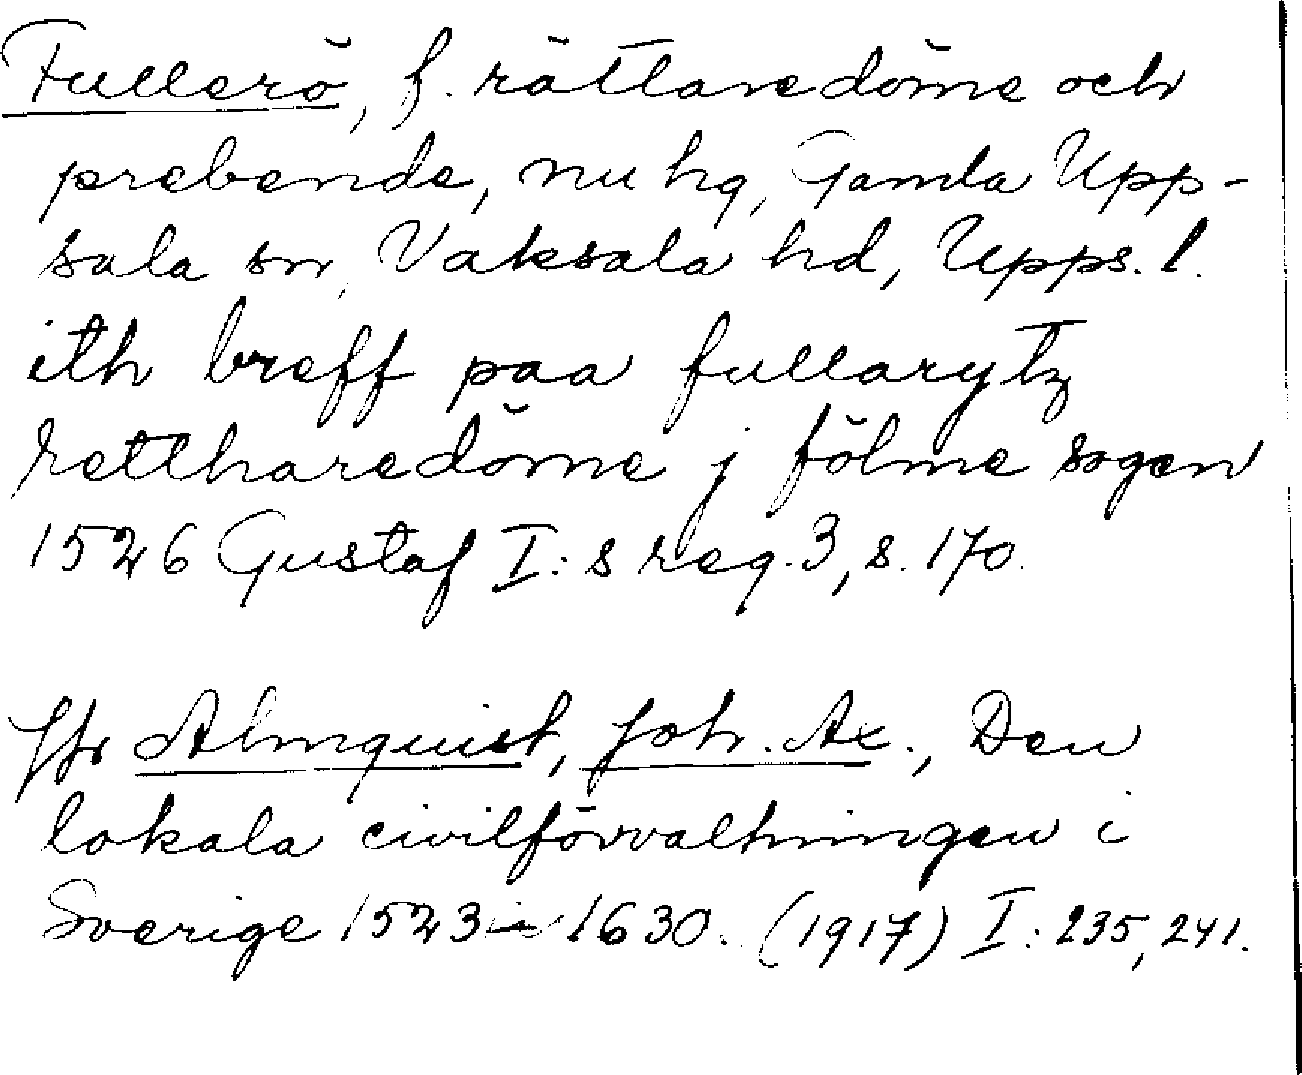 Fullerö, f. rättaredöme och
prebende, nu hg, Gamla Upp-
sala sn, Vaksala hd, Upps. l.
ith breff paa fullarytz
rettharedöme j fölme sogen
1526 Gustaf I:s reg. 3, s. 170.
Jfr Almquist, Joh. Ax., Den
lokala civilförvaltningen i
Sverige 1523-1630. (1917) I: 235, 241.